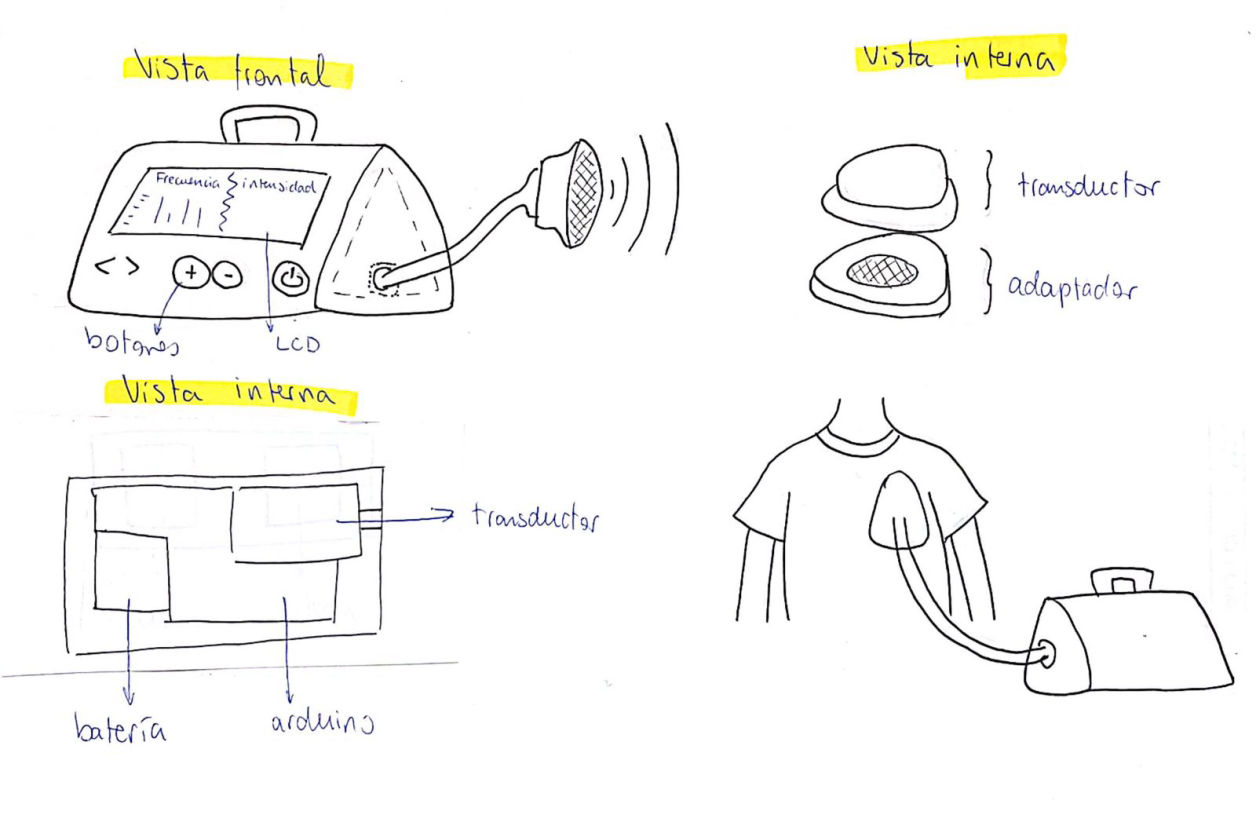 Vista frontal
Frecuencia intensidad
< >
+ -
botones
LCD
Vista interna
transductor
adaptador
Vista interna
transductor
batería
arduino